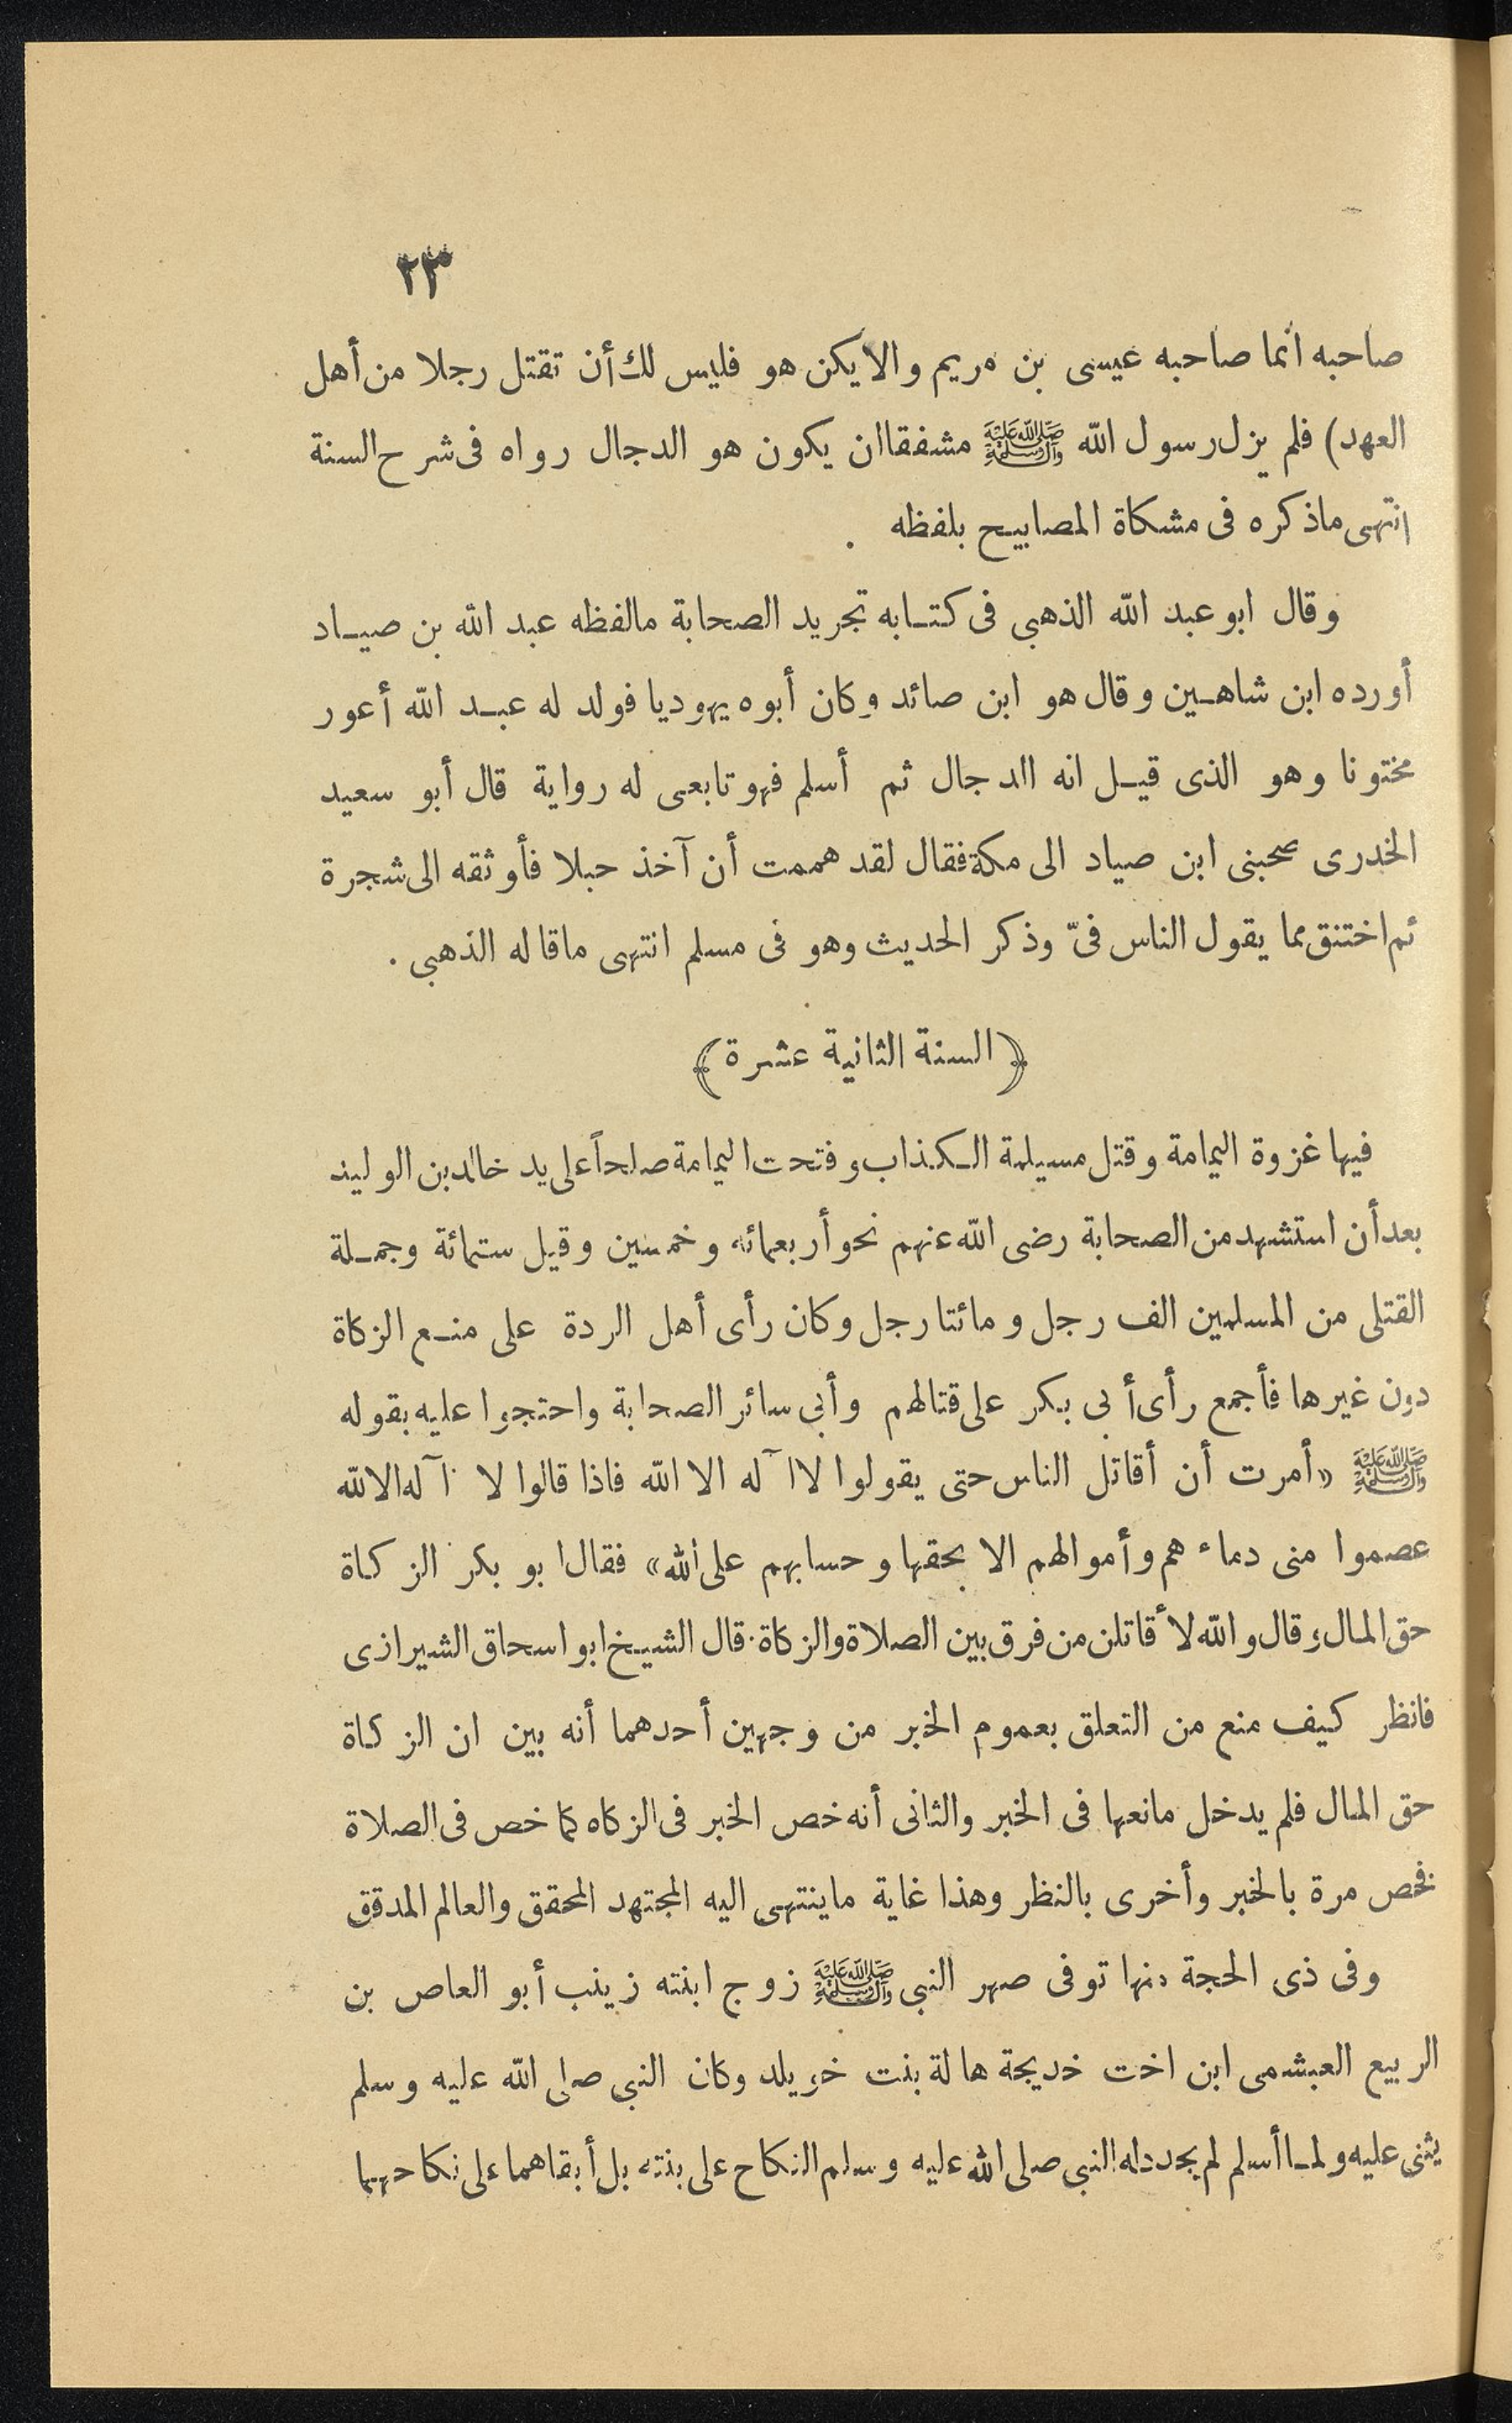 ٢٣
صاحبه انما صاحبه عيسى بن مريم والا يكن هو فليس لك أن تقتل رجلا من أهل
العهد) فلم يزل رسول الله ﷺ مشفقا ان يكون هو الدجال رواه فى شرح السنة
انتهى ماذكره فى مشكاة المصابيح بلفظه .
وقال ابو عبد الله الذهبي فى كتابه تجريد الصحابة مالفظه عبد الله بن صياد
أورده ابن شاهين وقال هو ابن صائد وكان أبوه يهوديا فولد له عبد الله أعور
مختونا وهو الذى قيل انه الدجال ثم أسلم فهو تابعى له رواية قال أبو سعيد
الخدرى صحبنى ابن صياد الى مكة فقال لقد هممت أن آخذ حبلا فأوثقه الى شجرة
ثم اختنق مما يقول الناس فىّ وذكر الحديث وهو فى مسلم انتهى ماقاله الذهبي .
﴿ السنة الثانية عشرة ﴾
فيها غزوة اليمامة وقتل مسيلمة الكذاب وفتحت اليمامة صلحاً على يد خالد بن الوليد
بعد أن استشهد من الصحابة رضى الله عنهم نحو أربعمائه وخمسين وقيل ستمائة وجملة
القتلى من المسلمين الف رجل ومائتا رجل وكان رأى أهل الردة على منع الزكاة
دون غيرها فأجمع رأى أبى بكر على قتالهم وأبى سائر الصحابة واحتجوا عليه بقوله
ﷺ «أمرت أن أقاتل الناس حتى يقولوا لا اآله الا الله فاذا قالوا لا اآله الا الله
عصموا منى دماءهم وأموالهم الا بحقها وحسابهم على الله» فقال ابو بكر الزكاة
حق المال وقال والله لأقاتلن من فرق بين الصلاة والزكاة. قال الشيخ ابو اسحاق الشيرازى
فانظر كيف منع من التعلق بعموم الخبر من وجهين أحدهما أنه بين ان الزكاة
حق المال فلم يدخل مانعها فى الخبر والثانى أنه خص الخبر فى الزكاه كما خص فى الصلاة
فخص مرة بالخبر وأخرى بالنظر وهذا غاية ماينتهى اليه المجتهد المحقق والعالم المدقق
وفى ذى الحجة منها توفى صهر النبى ﷺ زوج ابنته زينب أبو العاص بن
الربيع العبشمى ابن اخت خديجة هالة بنت خويلد وكان النبي صلى الله عليه وسلم
يثنى عليه ولما أسلم لم يجدد له النبي صلى الله عليه وسلم النكاح على بنته بل أبقاهما على نكاحهما